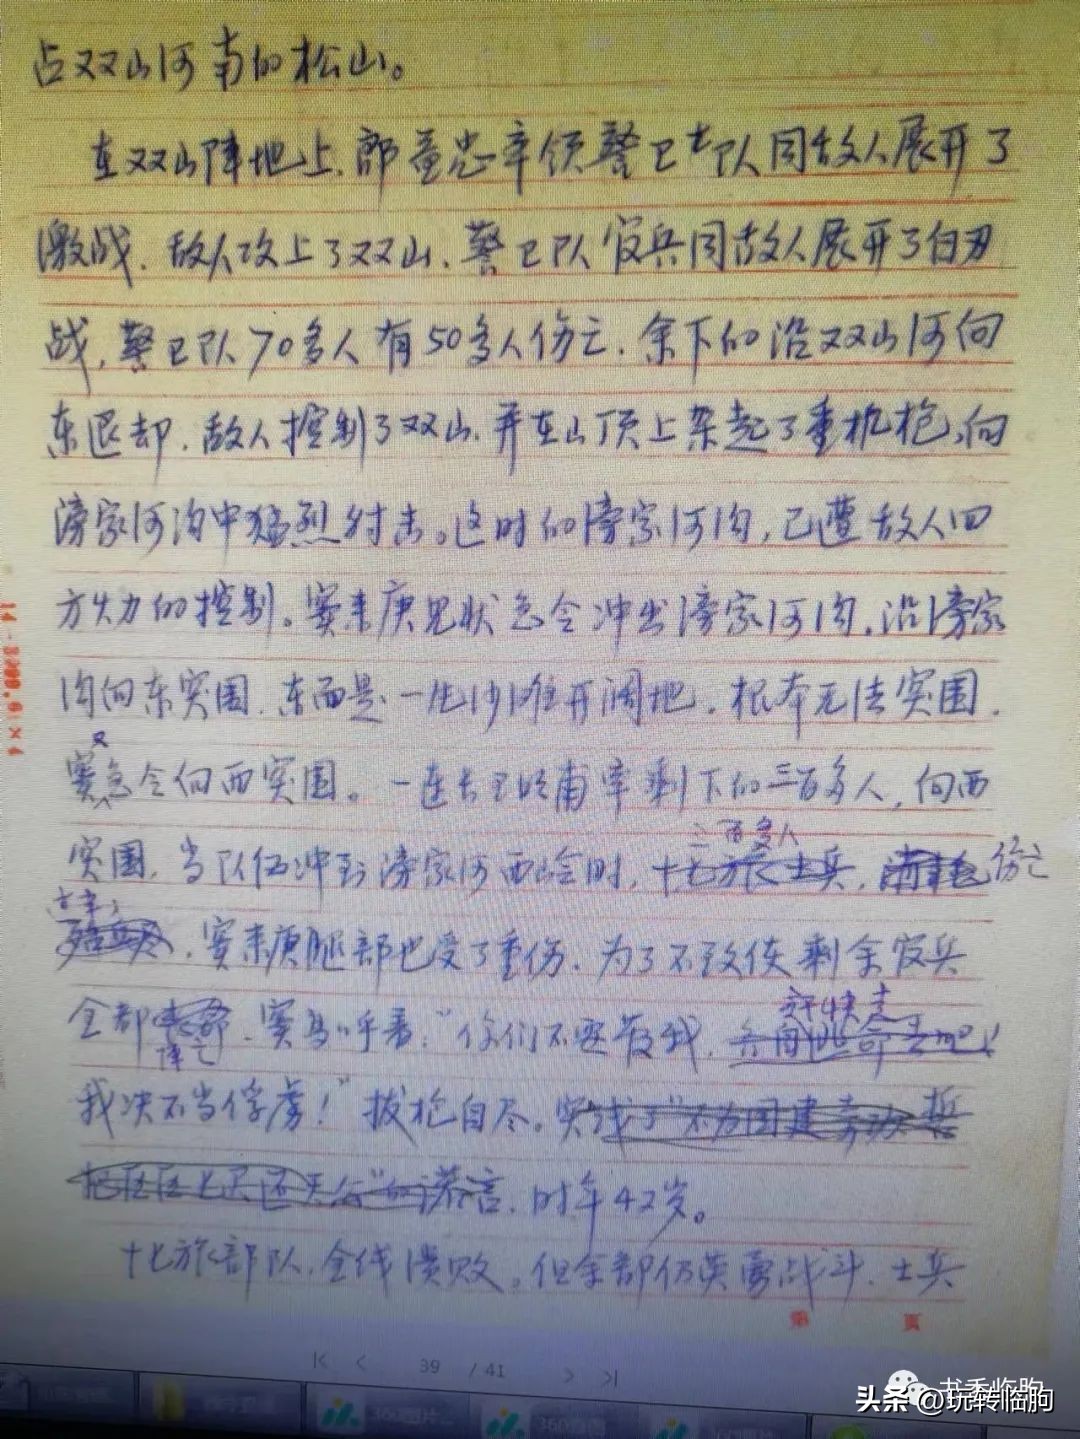 占双山河南的松山。
在双山阵地上,部童忠率领警卫队同敌人展开了
激战,敌人攻上了双山,警卫队官兵同敌人展开了白刃
战,警卫队70多人有50多人伤亡,余下的沿双山河向
东退却,敌人控制了双山,并在山顶上架起了重机枪,向
滂家河沟中猛烈射击。这时的滂家河沟,已遭敌人四
方火力的控制。窦来庚见状急令冲出滂家河沟,沿滂家
沟向东突围,东面是一片沙滩开阔地,根本无法突围,
窦又急令向西突围。一连长率剩下的三百多人,向西
突围,当队伍冲到滂家河西时,
二百多人
十七旅士兵,伤亡
窦来庚腿部也受了重伤,为了不致使剩余官兵
全部
阵亡
,窦高呼着:"你们不要管我,
我决不当俘虏!"拔枪自尽。实
谎言,时年42岁。
十七旅部队,全线溃败,但余部仍英勇战斗,士兵
第 页
39 / 41
书香临朐
头条@玩转临朐